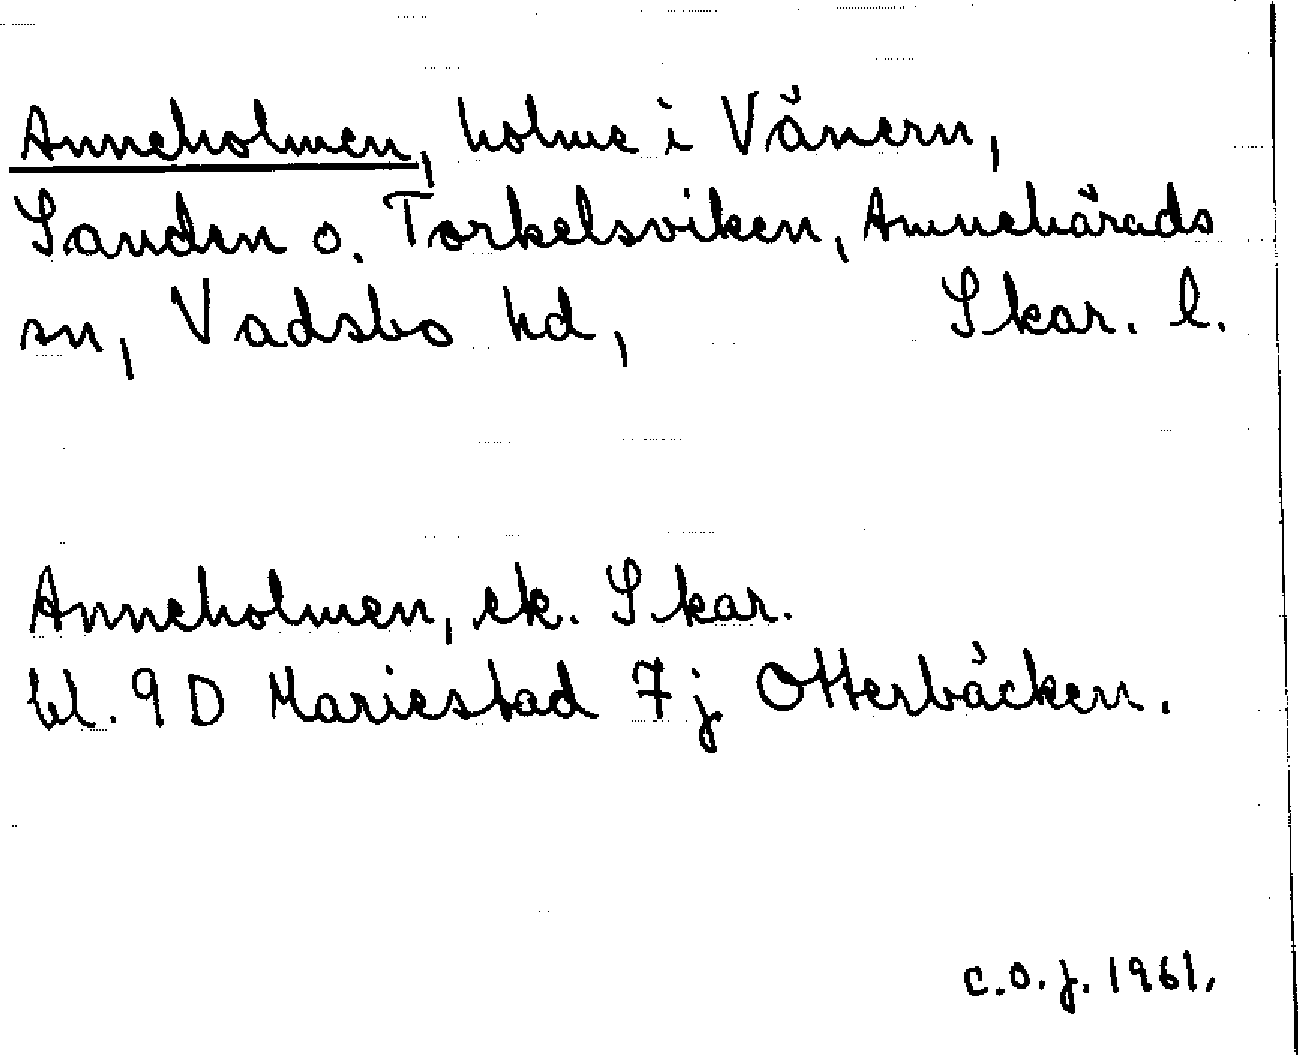 Anneholmen, holme i Vänern,
Sanden o. Torkelsviken, Amnehärads
sn, Vadsbo hd, Skar. l.
Anneholmen, ek. Skar.
bl. 9 D Mariestad 7j Otterbäcken.
C.O.J. 1961,